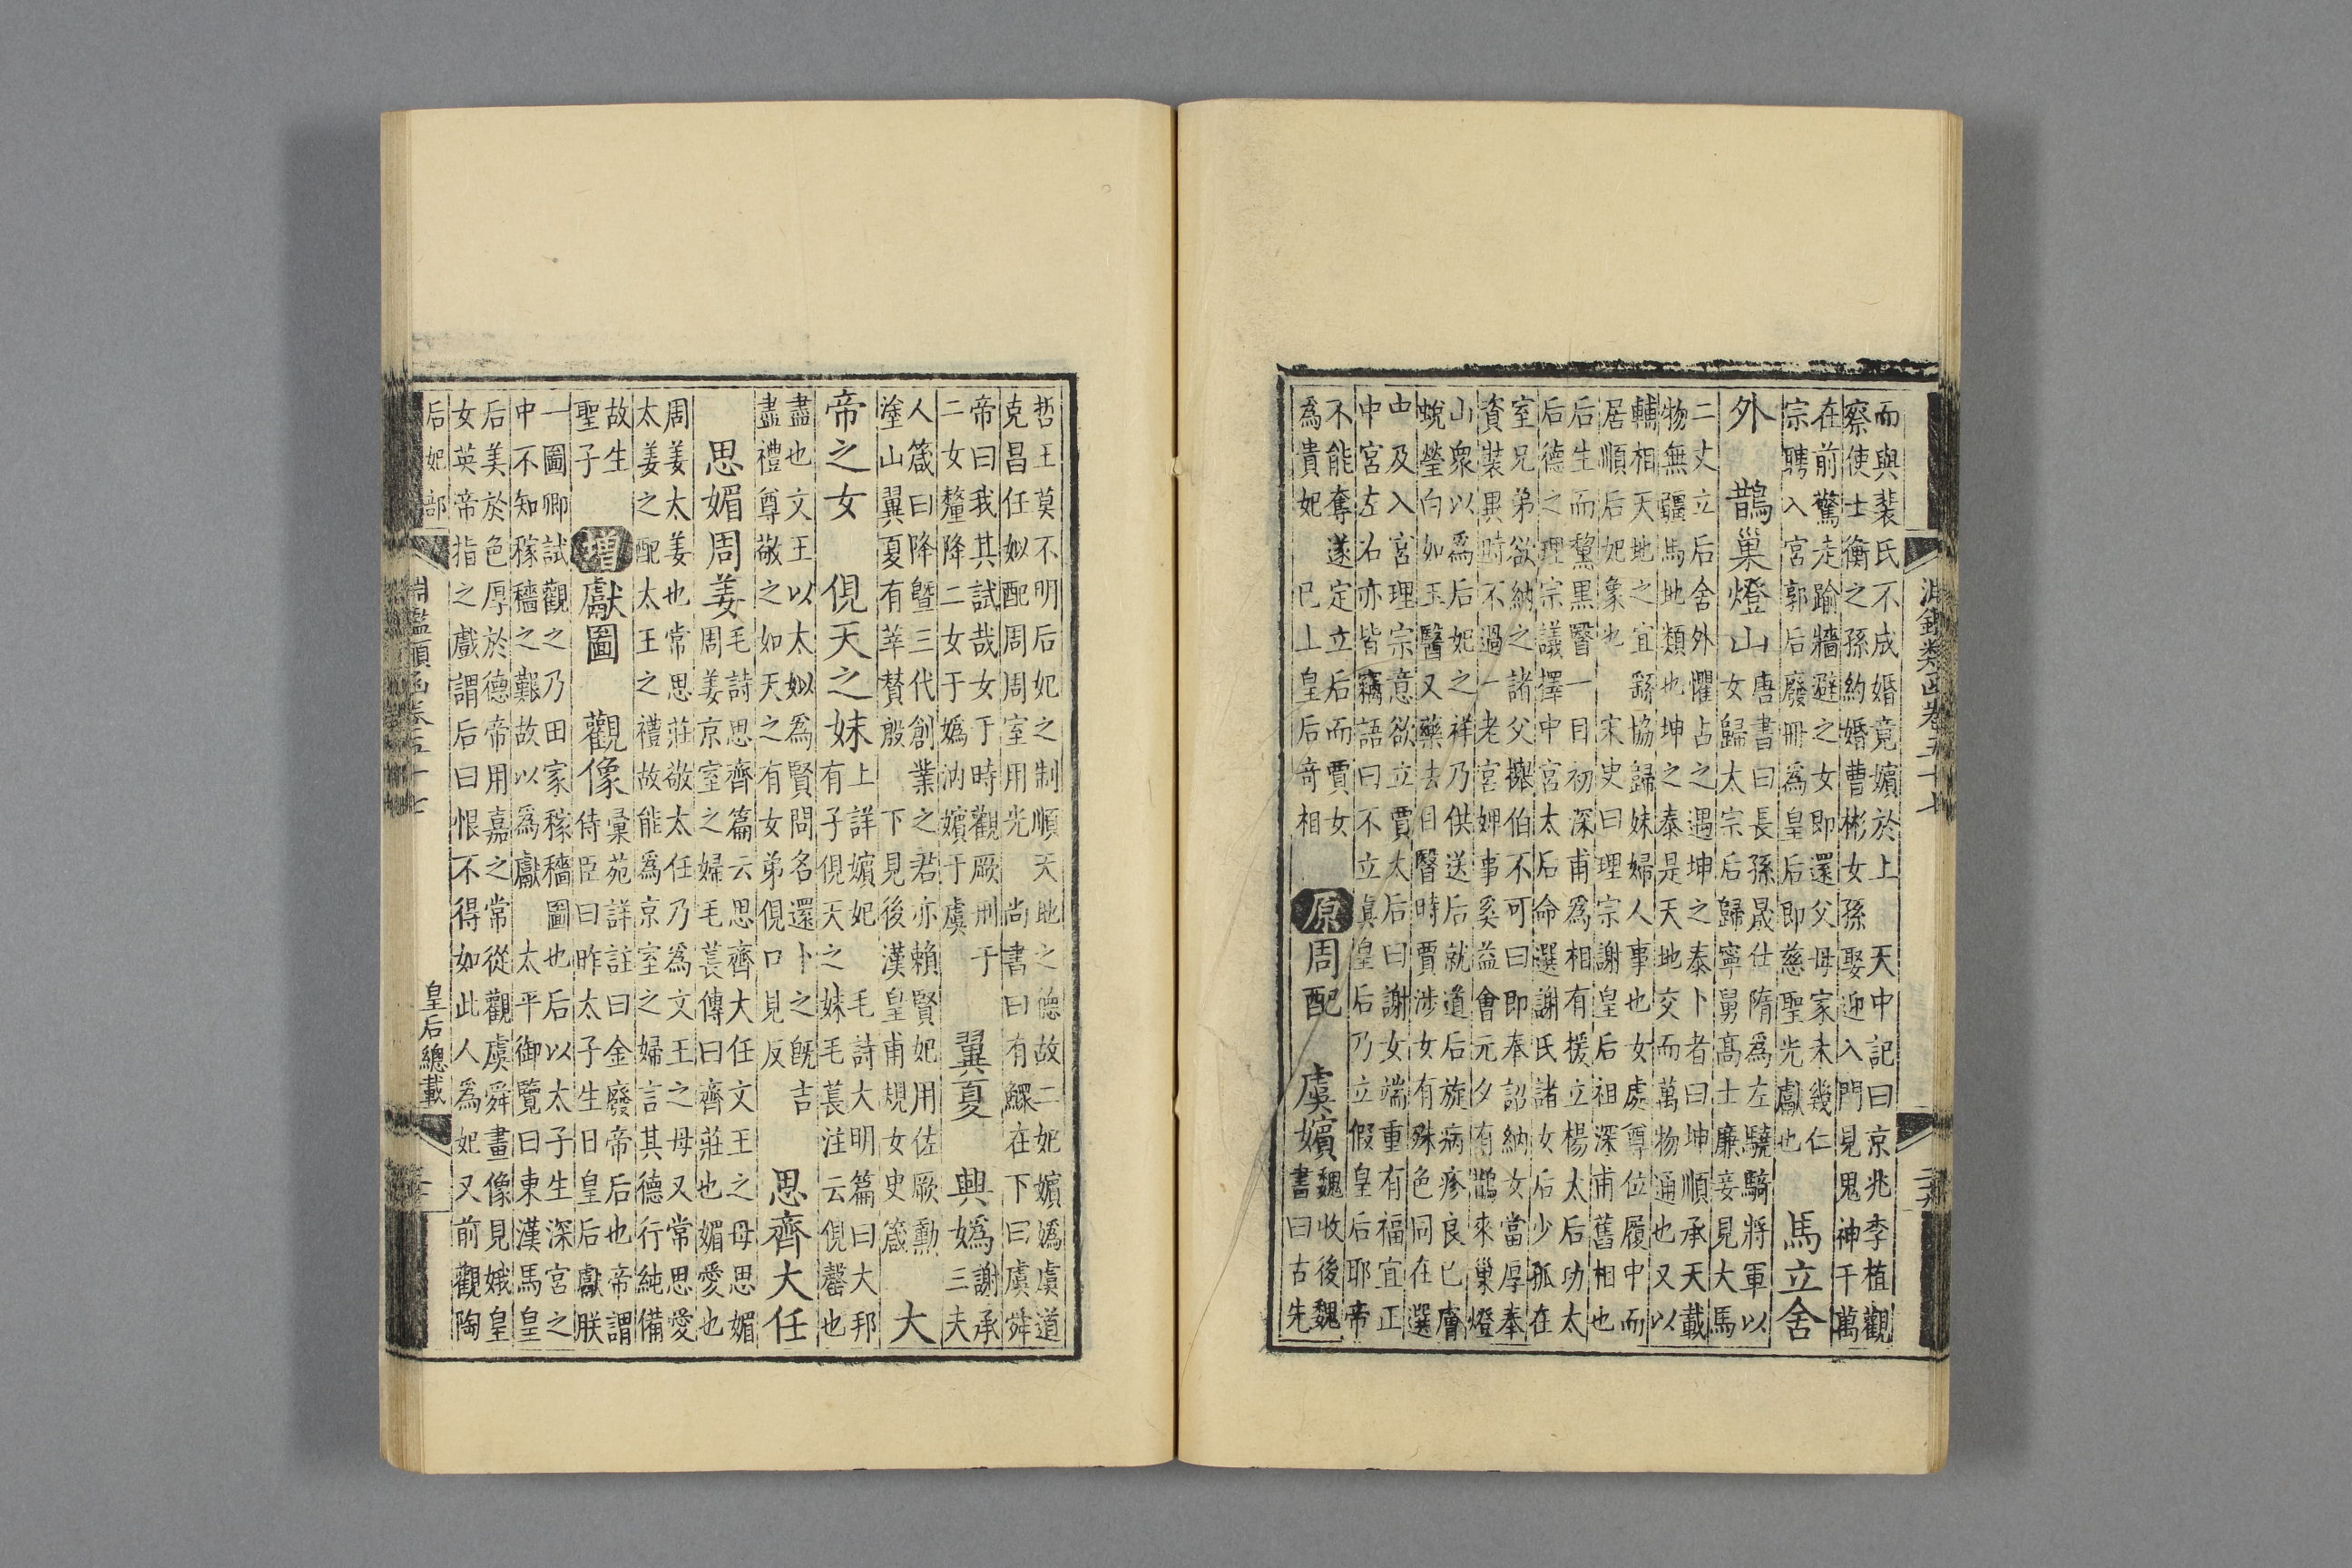 淵鑑類函卷五十七
而與裴氏不成婚竟嬪於上　天中記曰京兆李植觀
察使士衡之孫約婚曹彬女孫娶迎入門見鬼神千萬
在前驚走踰牆避之女即還父母家未幾仁
宗聘入宮郭后廢冊為皇后即慈聖光獻也
馬立舍
外　鵲巢燈山
唐書曰長孫晟仕隋為左驍騎將軍以
女歸太宗后歸寧舅高士廉妾見大馬
二丈立后舍外懼占之遇坤之泰卜者曰坤順承天載
物無疆馬地類也坤之泰是天地交而萬物通也又以
輔相天地之宜繇協歸妹婦人事也女處尊位履中而
居順后妃象也　宋史曰理宗謝皇后祖深甫舊相也
后生而黧黑瞖一目初深甫為相有援立楊太后功太
后德之理宗議擇中宮太后命選謝氏諸女后少孤在
室兄弟欲納之諸父攑伯不可曰即奉詔納女當厚奉
資裝異時不過一老宮婢事奚益會元夕有鵲來巢燈
山衆以為后妃之祥乃供送后就道后旋病疹良已膚
蛻瑩白如玉醫又藥去目瞖時賈涉女有殊色同在選
中及入宮理宗意欲立賈太后曰謝女端重有福宜正
中宮左右亦皆竊語曰不立眞皇后乃立假皇后耶帝
不能奪遂定立后而賈女
為貴妃　已上皇后竒相
原周配　虞嬪
魏收後魏
書曰古先
哲王莫不明后妃之制順天地之德故二妃嬪嬀虞道
克昌任姒配周周室用光　尚書曰有鰥在下曰虞舜
帝曰我其試哉女于時觀厥刑于
二女釐降二女于嬀汭嬪于虞
翼夏　興嬀
謝承
三夫
人箴曰降曁三代創業之君亦賴賢妃用佐厥勳
塗山翼夏有莘賛殷　下見後漢皇甫規女史箴
大
帝之女　俔天之妹
上詳嬪妃　毛詩大明篇曰大邦
有子俔天之妹毛萇注云俔罄也
盡也文王以太姒為賢問名還卜之旣吉
盡禮尊敬之如天之有女弟俔口見反
思齊大任
思媚周姜
毛詩思齊篇云思齊大任文王之母思媚
周姜京室之婦毛萇傳曰齊莊也媚愛也
周姜太姜也常思莊敬太任乃為文王之母又常思愛
太姜之配太王之禮故能為京室之婦言其德行純備
故生
聖子
增獻圖　觀像
彙苑詳註曰金廢帝后也帝謂
侍臣曰昨太子生日皇后獻朕
一圖卿試觀之乃田家稼穡圖也后以太子生深宮之
中不知稼穡之艱故以為獻　太平御覽曰東漢馬皇
后美於色厚於德帝用嘉之常從觀虞舜畫像見娥皇
女英帝指之戲謂后曰恨不得如此人為妃又前觀陶
后妃部
淵鑑類函卷五十七
皇后總載